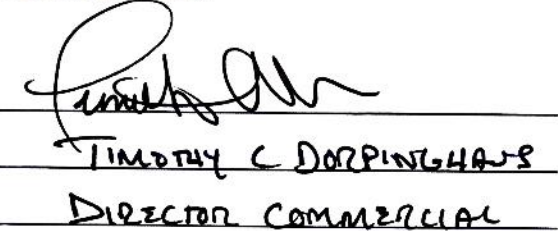 TIMOTHY C DORPINGHAUS
DIRECTOR COMMERCIAL